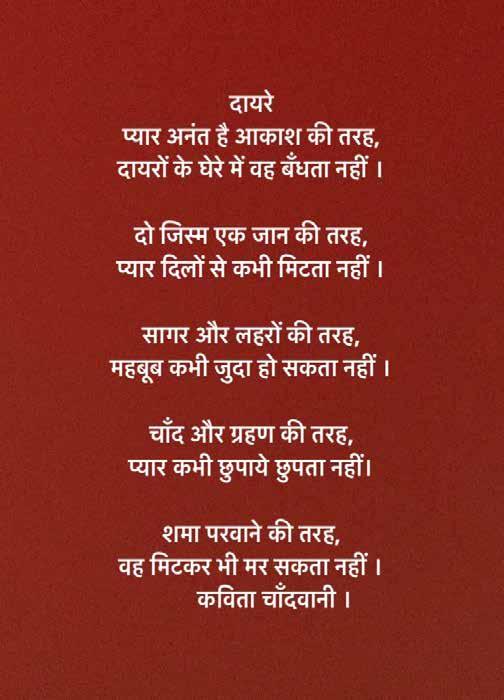 दायरे
प्यार अनंत है आकाश की तरह,
दायरों के घेरे में वह बँधता नहीं ।
दो जिस्म एक जान की तरह,
प्यार दिलों से कभी मिटता नहीं ।
सागर और लहरों की तरह,
महबूब कभी जुदा हो सकता नहीं ।
चाँद और ग्रहण की तरह,
प्यार कभी छुपाये छुपता नहीं।
शमा परवाने की तरह,
वह मिटकर भी मर सकता नहीं ।
कविता चाँदवानी ।